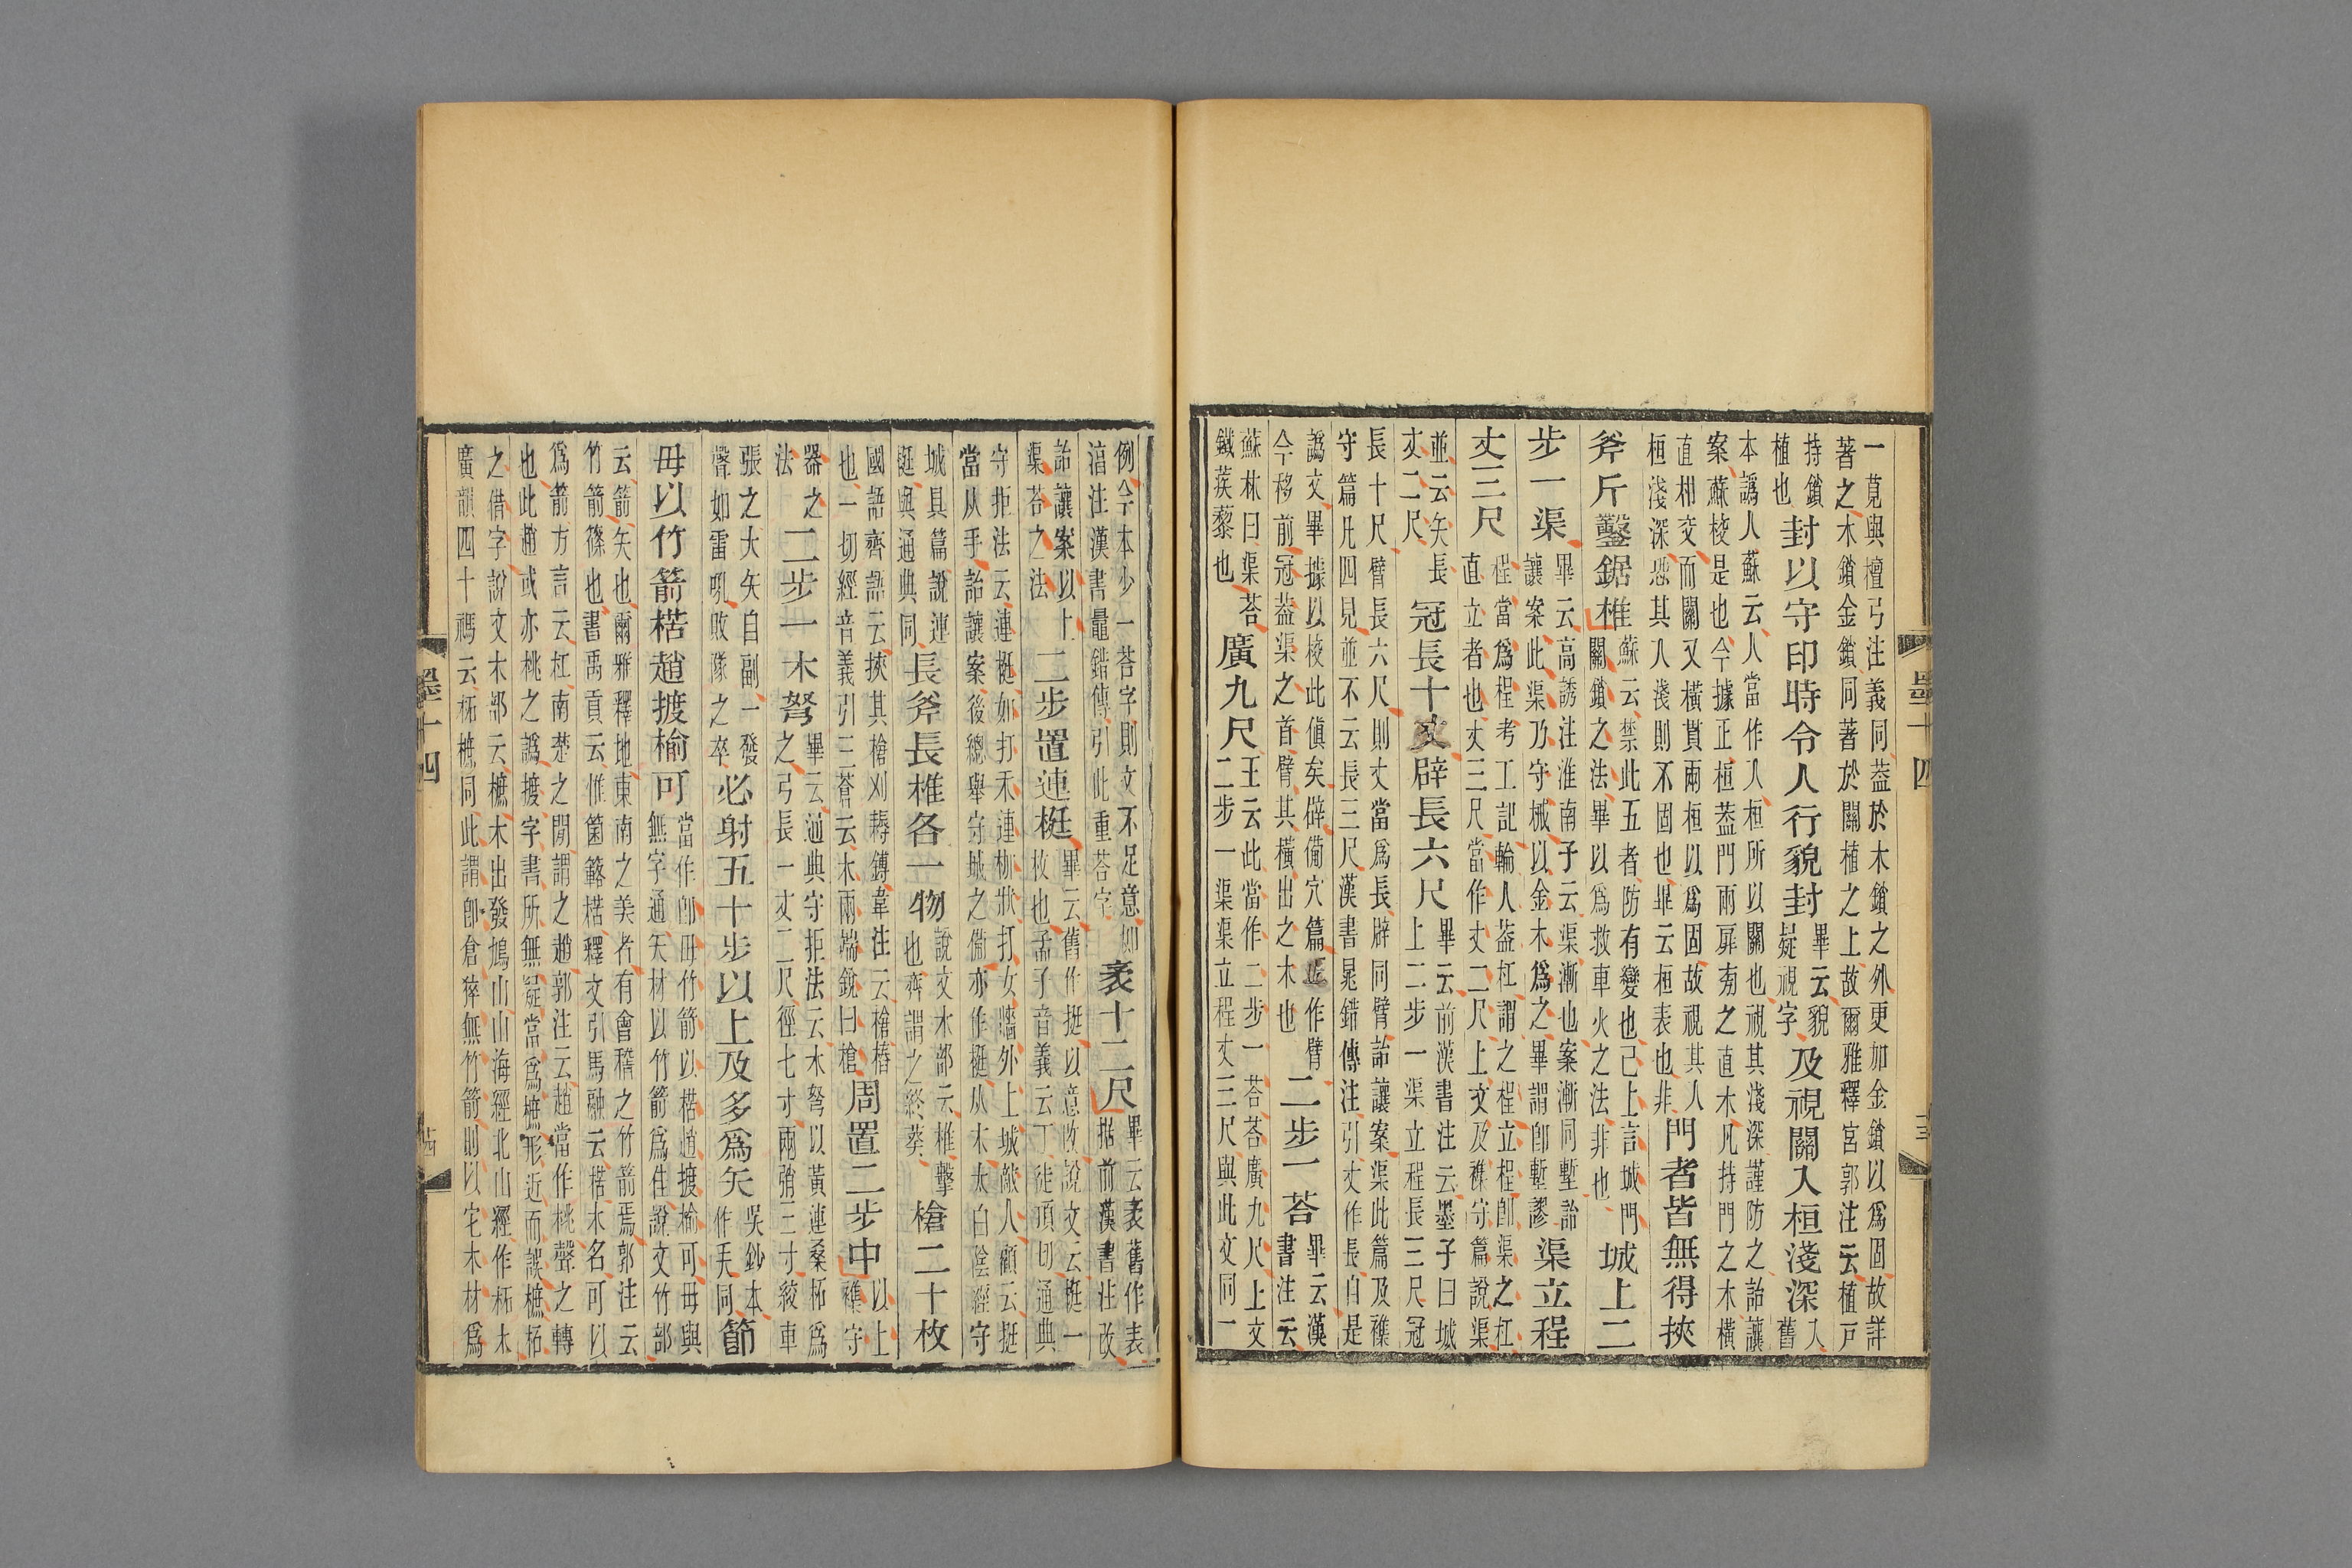 一莧與檀弓注義同葢於木鎖之外更加金鎖以爲固故詳
著之木鎖金鎖同著於關植之上故爾雅釋宮郭注云植戸
持鎖植也封以守印時令人行貌封畢云貌疑視字及視關入桓淺深入舊
本譌人蘇云人當作入桓所以關也視其淺深謹防之詒讓
案蘇校是也今據正桓葢門兩扉旁之直木凡持門之木橫
直相交而關又橫貫兩桓以爲固故視其人桓淺深恐其入淺則不固也畢云桓表也非門者皆無得挾
斧斤鑿鋸椎蘇云禁此五者防有變也已上言城門關鎖之法畢以爲救車火之法非也城上二
步一渠畢云高誘注淮南子云渠漸也案漸同塹詒讓案此渠乃守械以金木爲之畢謂卽塹謬渠立程
丈三尺程當爲桯考工記輪人葢杠謂之桯立桯卽渠之杠直立者也丈三尺當作丈二尺上文及襍守篇說渠
並云矢長丈二尺冠長十丈辟長六尺畢云前漢書注云墨子曰城上二步一渠立程長三尺冠
長十尺臂長六尺則丈當爲長辟同臂詒讓案渠此篇及襍
守篇凡四見並不云長三尺漢書晁錯傳注引丈作長自是
譌文畢據以校此傎矣辟備穴篇正作臂今移前冠葢渠之首臂其橫出之木也二步一荅畢云漢書注云
蘇林曰渠荅鐵蒺藜也廣九尺王云此當作二步一荅荅廣九尺上文二步一渠渠立程丈三尺與此文同一
墨十四
例今本少一荅字則文不足意如淳注漢書鼂錯傳引此重荅字袤十二尺畢云袤舊作表据前漢書注改
詒讓案以上渠荅之法二步置連梃畢云舊作挺以意改說文云梃一枚也孟子音義云丁徒頂切通典
守拒法云連梃如打禾連枷狀打女牆外上城敵人顧云挺
當从手詒讓案後總舉守城之備亦作梃从木太白陰經守
城具篇說連梃與通典同長斧長椎各一物說文木部云椎擊也齊謂之終葵槍二十枚
國語齊語云挾其槍刈耨鎛韋注云槍樁也一切經音義引三蒼云木兩端銳曰槍周置二步中以上襍守
器之法二步一木弩畢云通典守拒法云木弩以黃連桑柘爲之弓長一丈二尺徑七寸兩弰三寸絞車
張之大矢自副一發聲如雷吼敗隊之卒必射五十步以上及多爲矢吳鈔本作夭同節
毋以竹箭楛趙摭榆可當作卽毋竹箭以楛趙摭榆可毋與無字通矢材以竹箭爲佳說文竹部
云箭矢也爾雅釋地東南之美者有會稽之竹箭焉郭注云
竹箭篠也書禹貢云惟箘簵楛釋文引馬融云楛木名可以
爲箭方言云杠南楚之閒謂之趙郭注云趙當作桃聲之轉
也此趙或亦桃之譌摭字書所無疑當爲樜形近而誤樜柘
之借字說文木部云樜木出發鳩山山海經北山經作柘木
廣韻四十禡云柘樜同此謂卽倉猝無竹箭則以它木材爲
墨十四
十四